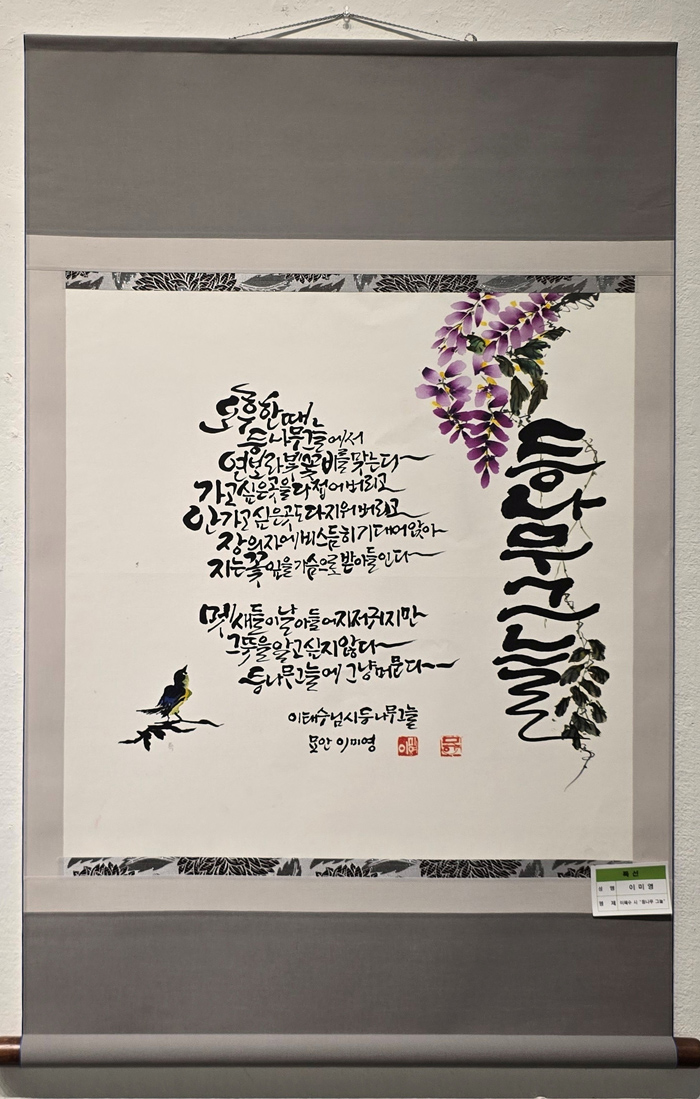 등나무그늘
오후 한때,
등나무그늘에서
연보라빛 꽃비를 맞는다
가고 싶은 곳을 다 접어버리고
안 가고 싶은 곳도 다 지워버리고
장의자에 비스듬히 기대어 앉아
지는 꽃잎을 가슴으로 받아들인다
멧새들이 날아들어 지저귀지만
그 뜻을 알고 싶지 않다
등나무그늘에 그냥 머문다
이태수님 시 등나무그늘
이미영
특선
성 명 이미영
명 제 이태수 시 "등나무 그늘"